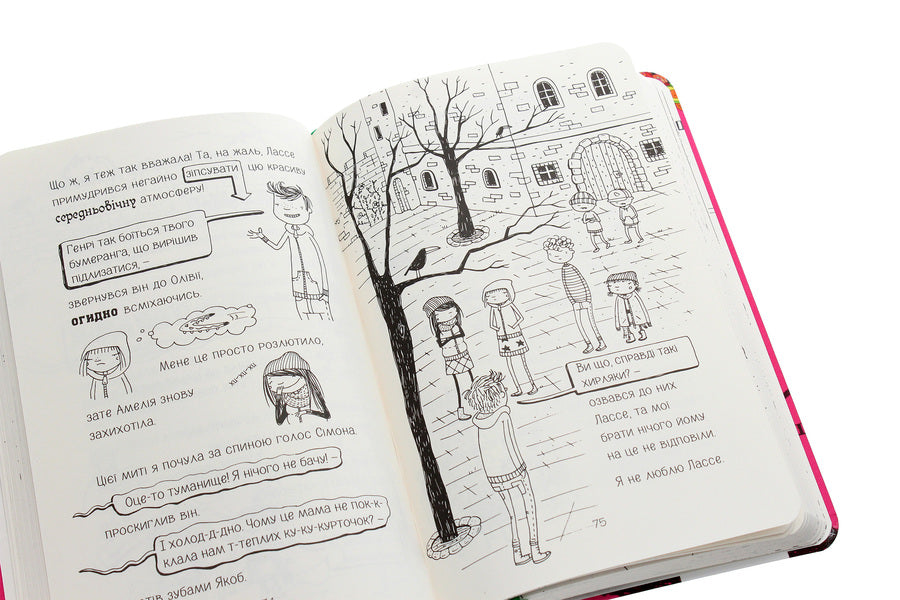 Що ж, я теж так вважала! Та, на жаль, Лассе
примудрився негайно зіпсувати цю красиву
середньовічну атмосферу!
Генрі так боїться твого
бумеранга, що вирішив
підлизатися, –
звернувся він до Олівії,
огидно всміхаючись.
Мене це просто розлютило,
хіх-хі-хі
зате Амелія знову
захихотіла.
Цієї миті я почула за спиною голос Сімона.
Оце-то туманище! Я нічого не бачу! –
проскиглив він.
І холод-д-дно. Чому це мама не пок-к-
клала нам т-теплих ку-ку-курточок? –
зубами Якоб.
Ви що, справді такі
хирляки? –
озвався до них
Лассе, та мої
брати нічого йому
на це не відповіли.
Я не люблю Лассе.
75